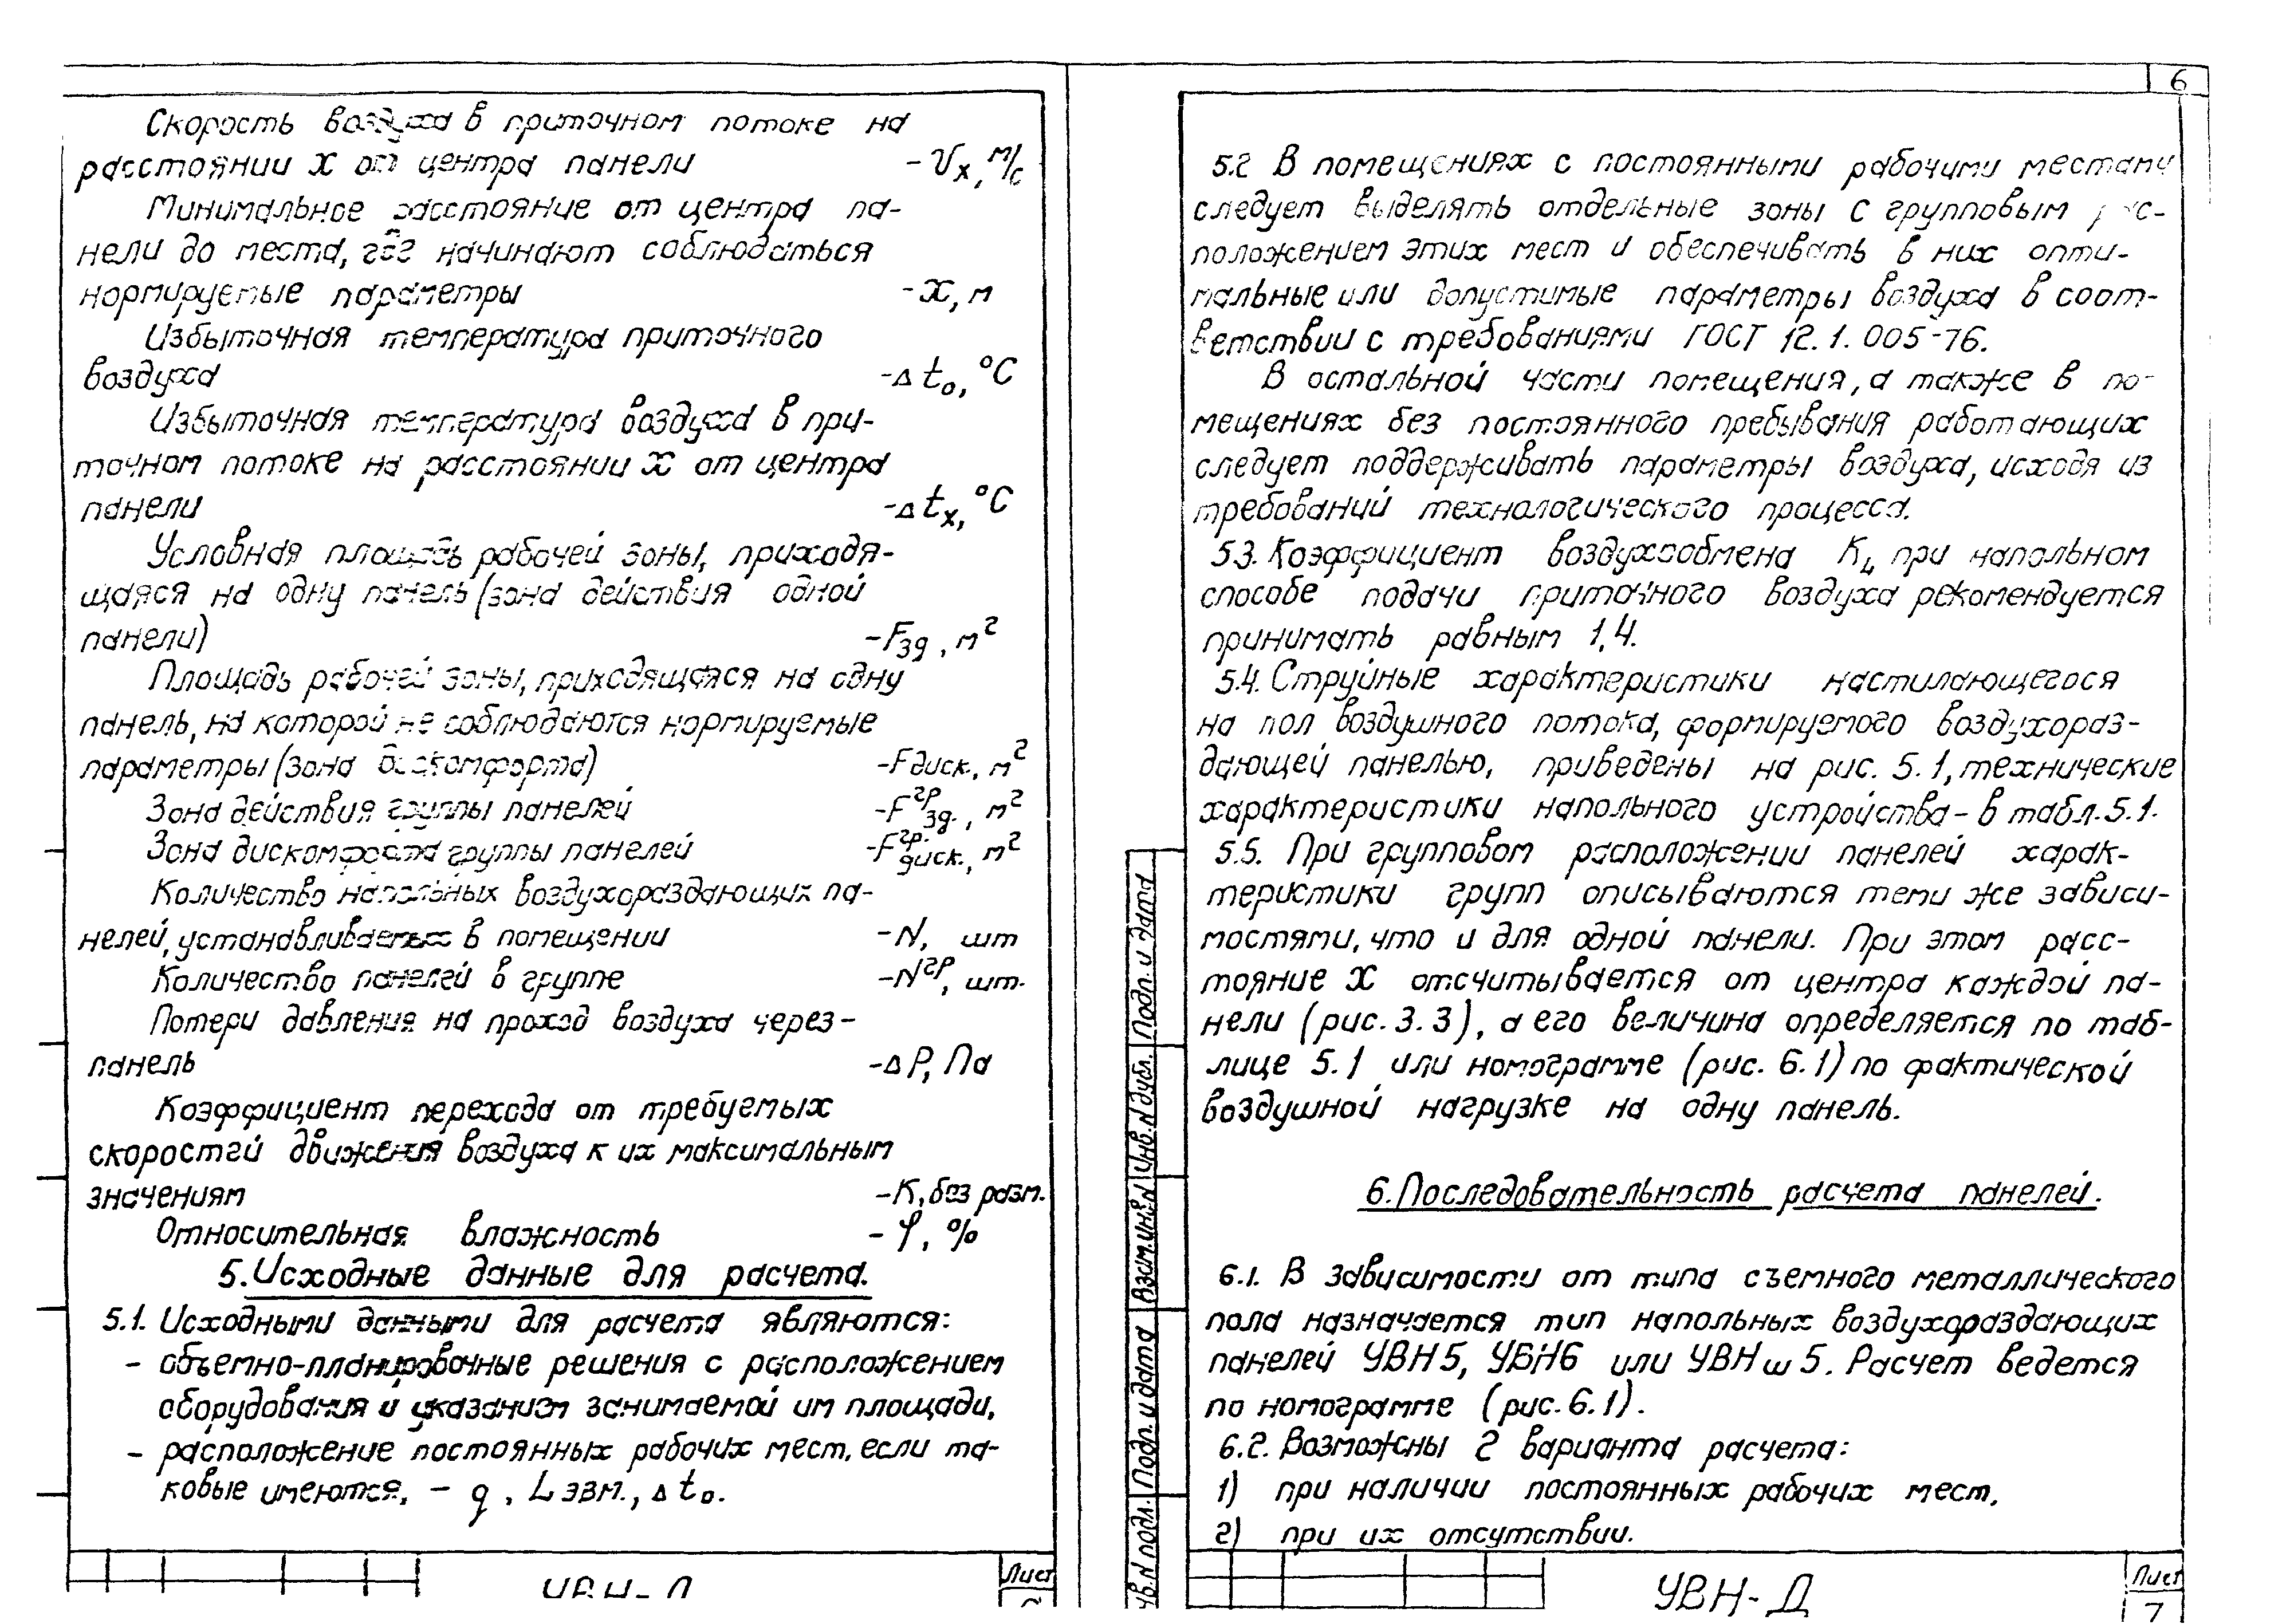 Скорость воздуха в приточном потоке на
расстоянии x от центра панели - Vx, м/с
Минимальное расстояние от центра па-
нели до места, где начинают соблюдаться
нормируемые параметры - x, м
Избыточная температура приточного
воздуха - Δ to, °C
Избыточная температура воздуха в при-
точном потоке на расстоянии x от центра
панели - Δ tx, °C
Условная площадь рабочей зоны, приходя-
щаяся на одну панель (зона действия одной
панели) - Fзд, м²
Площадь рабочей зоны, приходящаяся на одну
панель, на которой не соблюдаются нормируемые
параметры (зона дискомфорта) - Fдиск., м²
Зона действия группы панелей - Fзд.^гр, м²
Зона дискомфорта группы панелей - Fдиск.^гр., м²
Количество напольных воздухораздающих па-
нелей, устанавливаемых в помещении - N, шт
Количество панелей в группе - N^гр, шт.
Потери давления на проход воздуха через-
панель - Δ P, Па
Коэффициент перехода от требуемых
скоростей движения воздуха к их максимальным
значениям - К, без разм.
Относительная влажность - φ, %
5. Исходные данные для расчета.
5.1. Исходными данными для расчета являются:
- объемно-планировочные решения с расположением
оборудования и указанием занимаемой им площади,
- расположение постоянных рабочих мест, если та-
ковые имеются, - q, L эвм., Δ to.
Лист
6
5.2 В помещениях с постоянными рабочими местами
следует выделять отдельные зоны с групповым рас-
положением этих мест и обеспечивать в них опти-
мальные или допустимые параметры воздуха в соот-
ветствии с требованиями ГОСТ 12.1.005-76.
В остальной части помещения, а также в по-
мещениях без постоянного пребывания работающих
следует поддерживать параметры воздуха, исходя из
требований технологического процесса.
5.3. Коэффициент воздухообмена KL при напольном
способе подачи приточного воздуха рекомендуется
принимать равным 1,4.
5.4. Струйные характеристики настилающегося
на пол воздушного потока, формируемого воздухораз-
дающей панелью, приведены на рис. 5.1, технические
характеристики напольного устройства - в табл. 5.1.
5.5. При групповом расположении панелей харак-
теристики групп описываются теми же зависи-
мостями, что и для одной панели. При этом расс-
тояние x отсчитывается от центра каждой па-
нели (рис. 3.3), а его величина определяется по таб-
лице 5.1 или номограмме (рис. 6.1) по фактической
воздушной нагрузке на одну панель.
6. Последовательность расчета панелей.
6.1. В зависимости от типа съемного металлического
пола назначается тип напольных воздухораздающих
панелей УВН5, УВН6 или УВНш5. Расчет ведется
по номограмме (рис. 6.1).
6.2. Возможны 2 варианта расчета:
1) при наличии постоянных рабочих мест,
2) при их отсутствии.
Подп. и дата
Инв. N дубл.
Взам. инв. N
Подп. и дата
подл.
УВН-Д
Лист
7